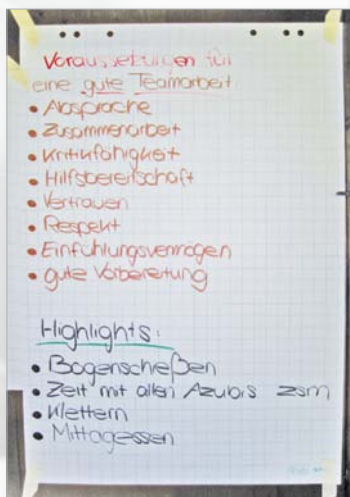 Voraussetzungen für
eine gute Teamarbeit
• Absprache
• Zusammenarbeit
• Kritikfähigkeit
• Hilfsbereitschaft
• Vertrauen
• Respekt
• Einfühlungsvermögen
• gute Vorbereitung
Highlights:
• Bogenschießen
• Zeit mit allen Azubis zsm
• Klettern
• Mittagessen